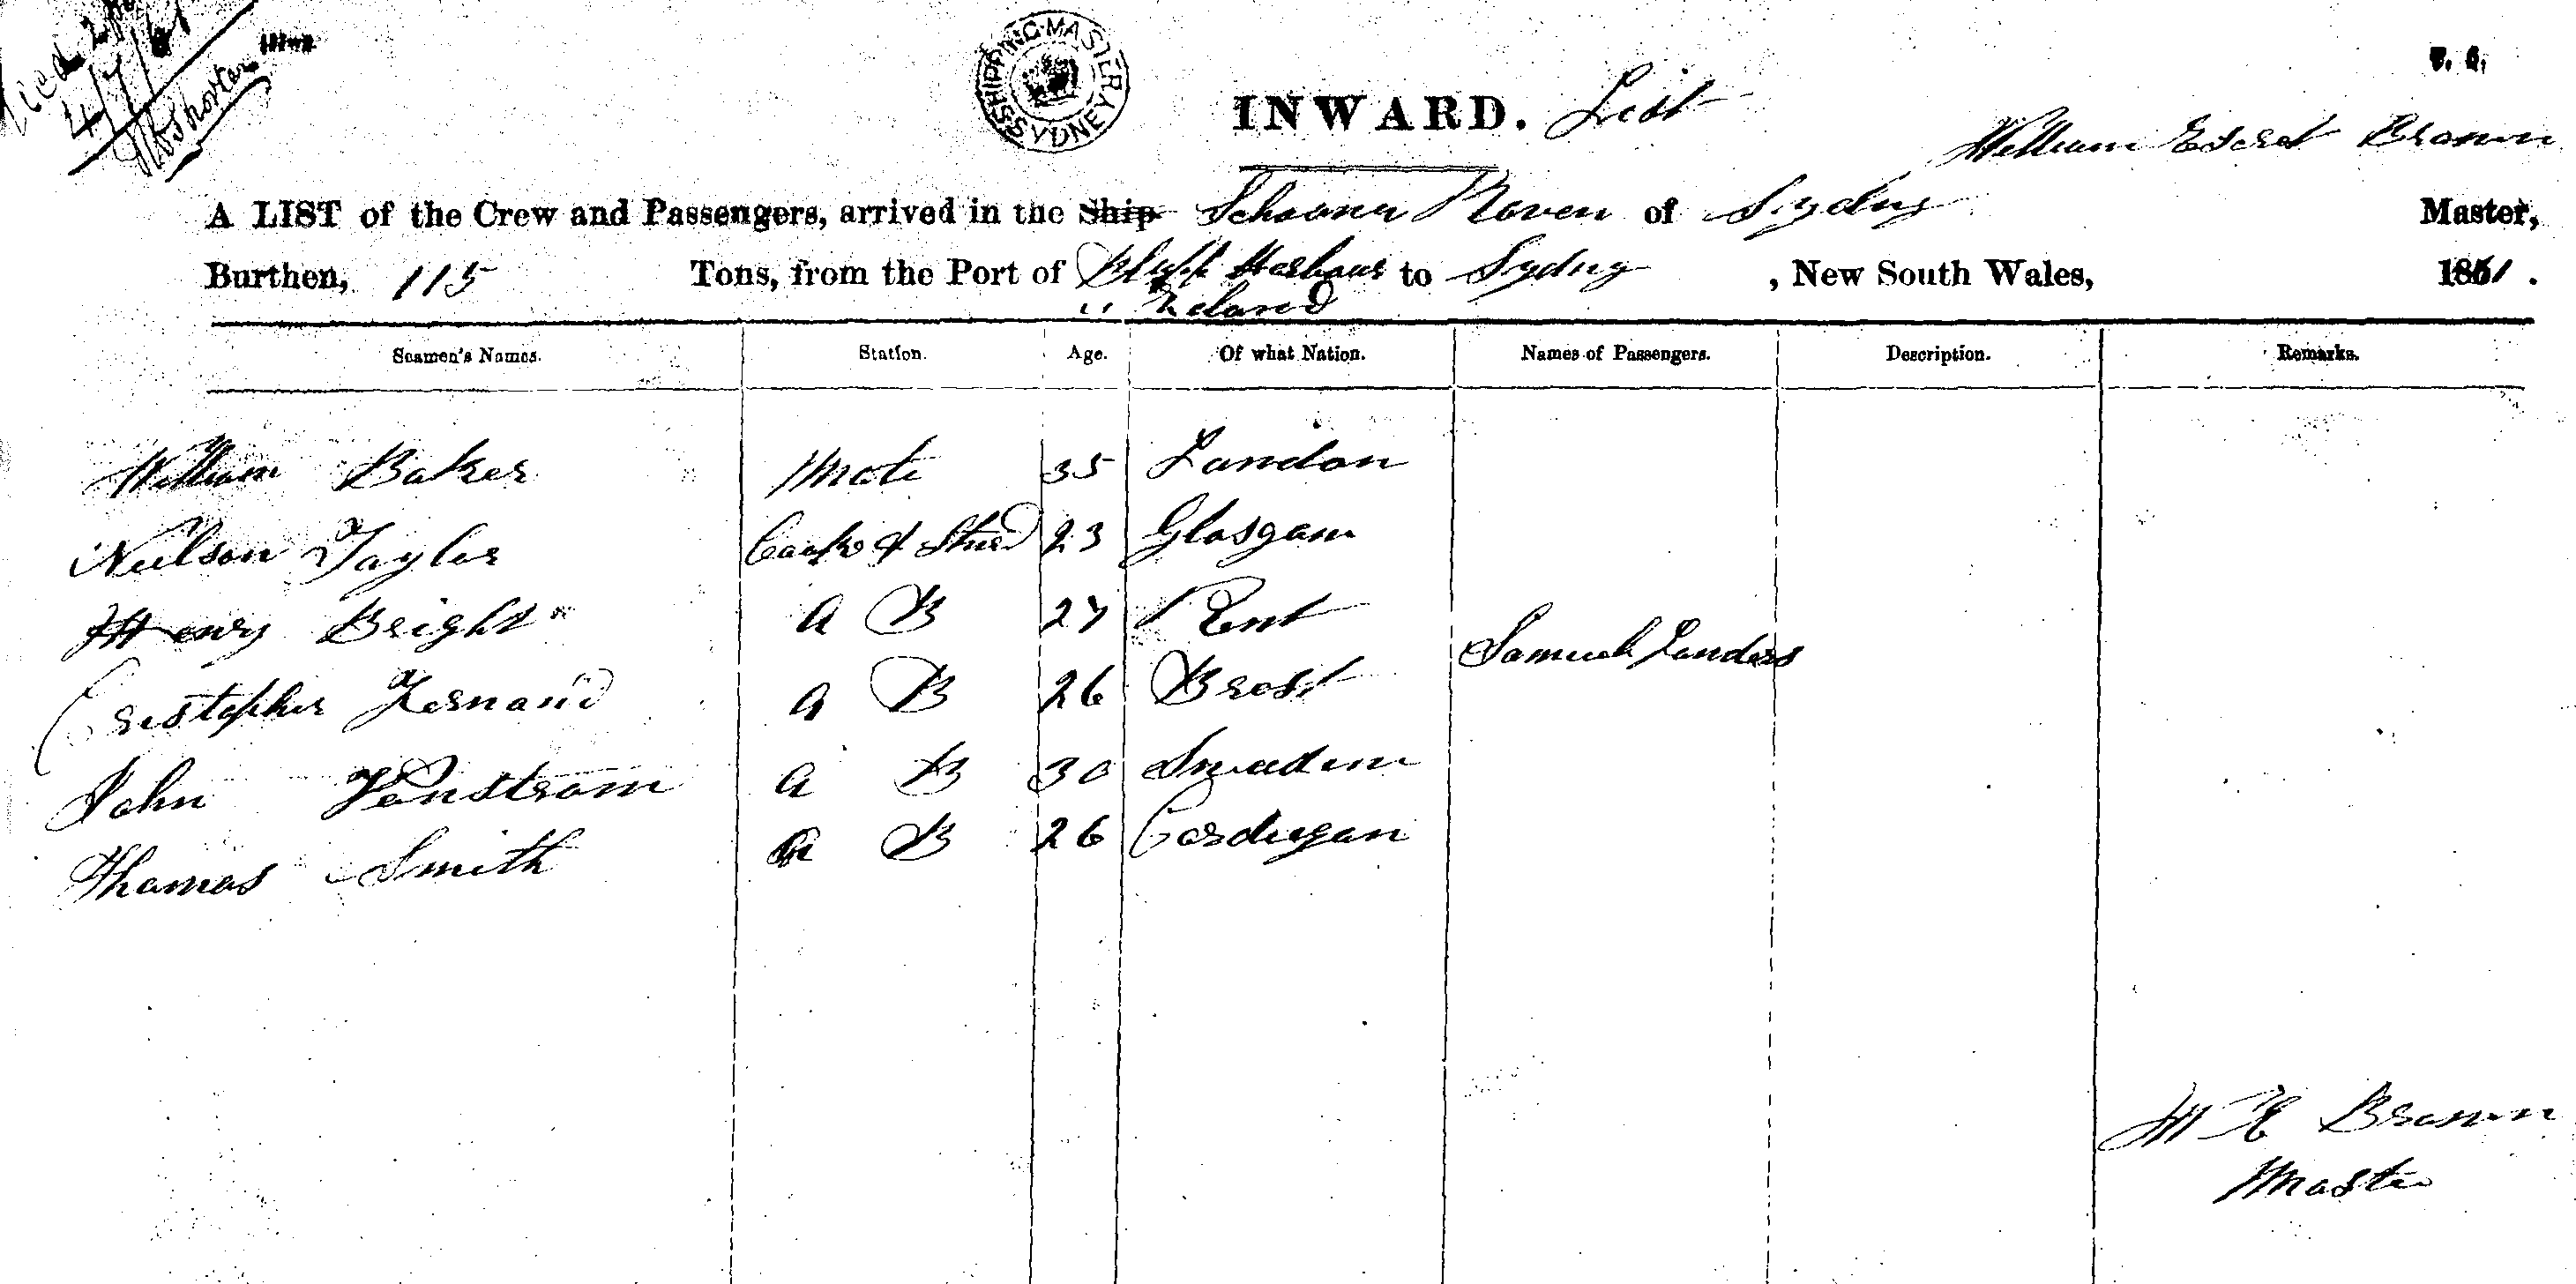 4/7/61
SHIPPING MASTER SYDNEY
INWARD. List
William Brown
A LIST of the Crew and Passengers, arrived in the Ship Schooner Raven of Sydny Master,
Burthen, 115 Tons, from the Port of Bluff Harbour to Sydny , New South Wales, 1861.
" Zeland
Seamen's Names. Station. Age. Of what Nation. Names of Passengers. Description. Remarks.
William Baker Mate 35 London
Neilson Taylor Cook & Stued 23 Glasgow
Henry Bright A B 27 Kent
Samuel Landers
Cristopher Fernand A B 26 Brest
John Venstrom A B 30 Sweaden
Thomas Smith A B 26 Cardigan
W E Brown
Master